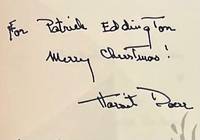 For Patrick Eddington
Merry Christmas!
Harriet Doerr